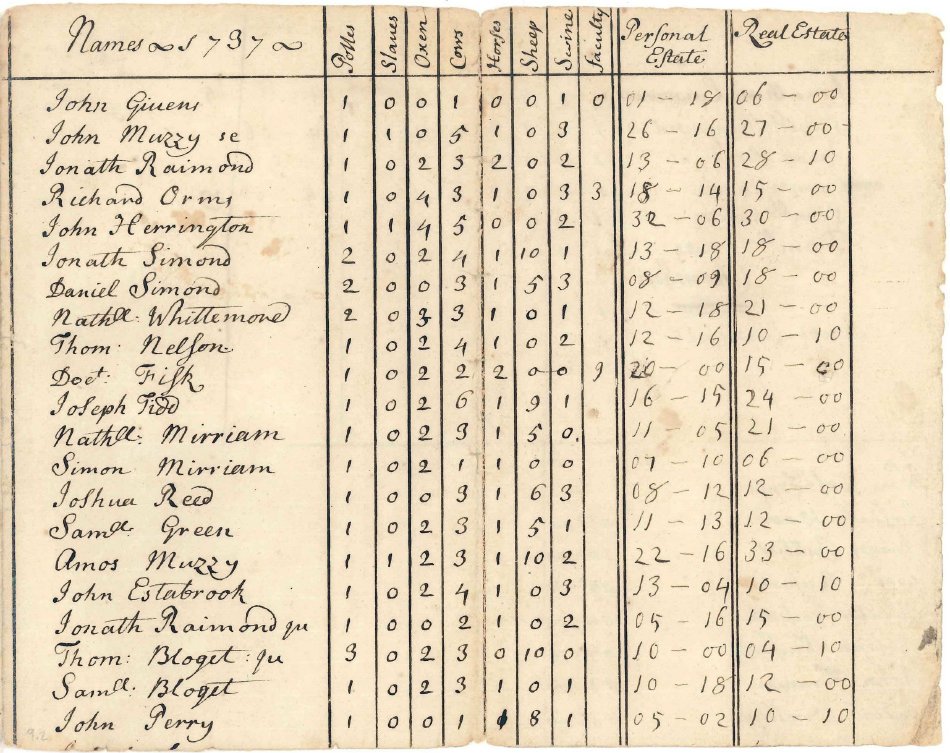 Names 1737 Polles Slaves Oxen Cows Horses Sheep Swine faculty Personal Estate Real Estate
John Givens 1 0 0 1 0 0 1 0 01 - 18 06 - 00
John Muzzy se 1 1 0 5 1 0 3 26 - 16 27 - 00
Jonath Raimond 1 0 2 3 2 0 2 13 - 06 28 - 10
Richard Orms 1 0 4 3 1 0 3 3 18 - 14 15 - 00
John Herrington 1 1 4 5 0 0 2 32 - 06 30 - 00
Jonath Simond 2 0 2 4 1 10 1 13 - 18 18 - 00
Daniel Simond 2 0 0 3 1 5 3 08 - 09 18 - 00
Nathll: Whittemore 2 0 3 3 1 0 1 12 - 18 21 - 00
Thom: Nelson 1 0 2 4 1 0 2 12 - 16 10 - 10
Doct: Fisk 1 0 2 2 2 0 0 9 20 - 00 15 - 00
Joseph Tidd 1 0 2 6 1 9 1 16 - 15 24 - 00
Nathll: Mirriam 1 0 2 3 1 5 0 11 - 05 21 - 00
Simon Mirriam 1 0 2 1 1 0 0 07 - 10 06 - 00
Joshua Reed 1 0 0 3 1 6 3 08 - 12 12 - 00
Samll: Green 1 0 2 3 1 5 1 11 - 13 12 - 00
Amos Muzzy 1 1 2 3 1 10 2 22 - 16 33 - 00
John Estabrook 1 0 2 4 1 0 3 13 - 04 10 - 10
Jonath Raimond ju 1 0 0 2 1 0 2 05 - 16 15 - 00
Thom: Bloget: ju 3 0 2 3 0 10 0 10 - 00 04 - 10
Samll: Bloget 1 0 2 3 1 0 1 10 - 18 12 - 00
John Perry 1 0 0 1 1 8 1 05 - 02 10 - 10